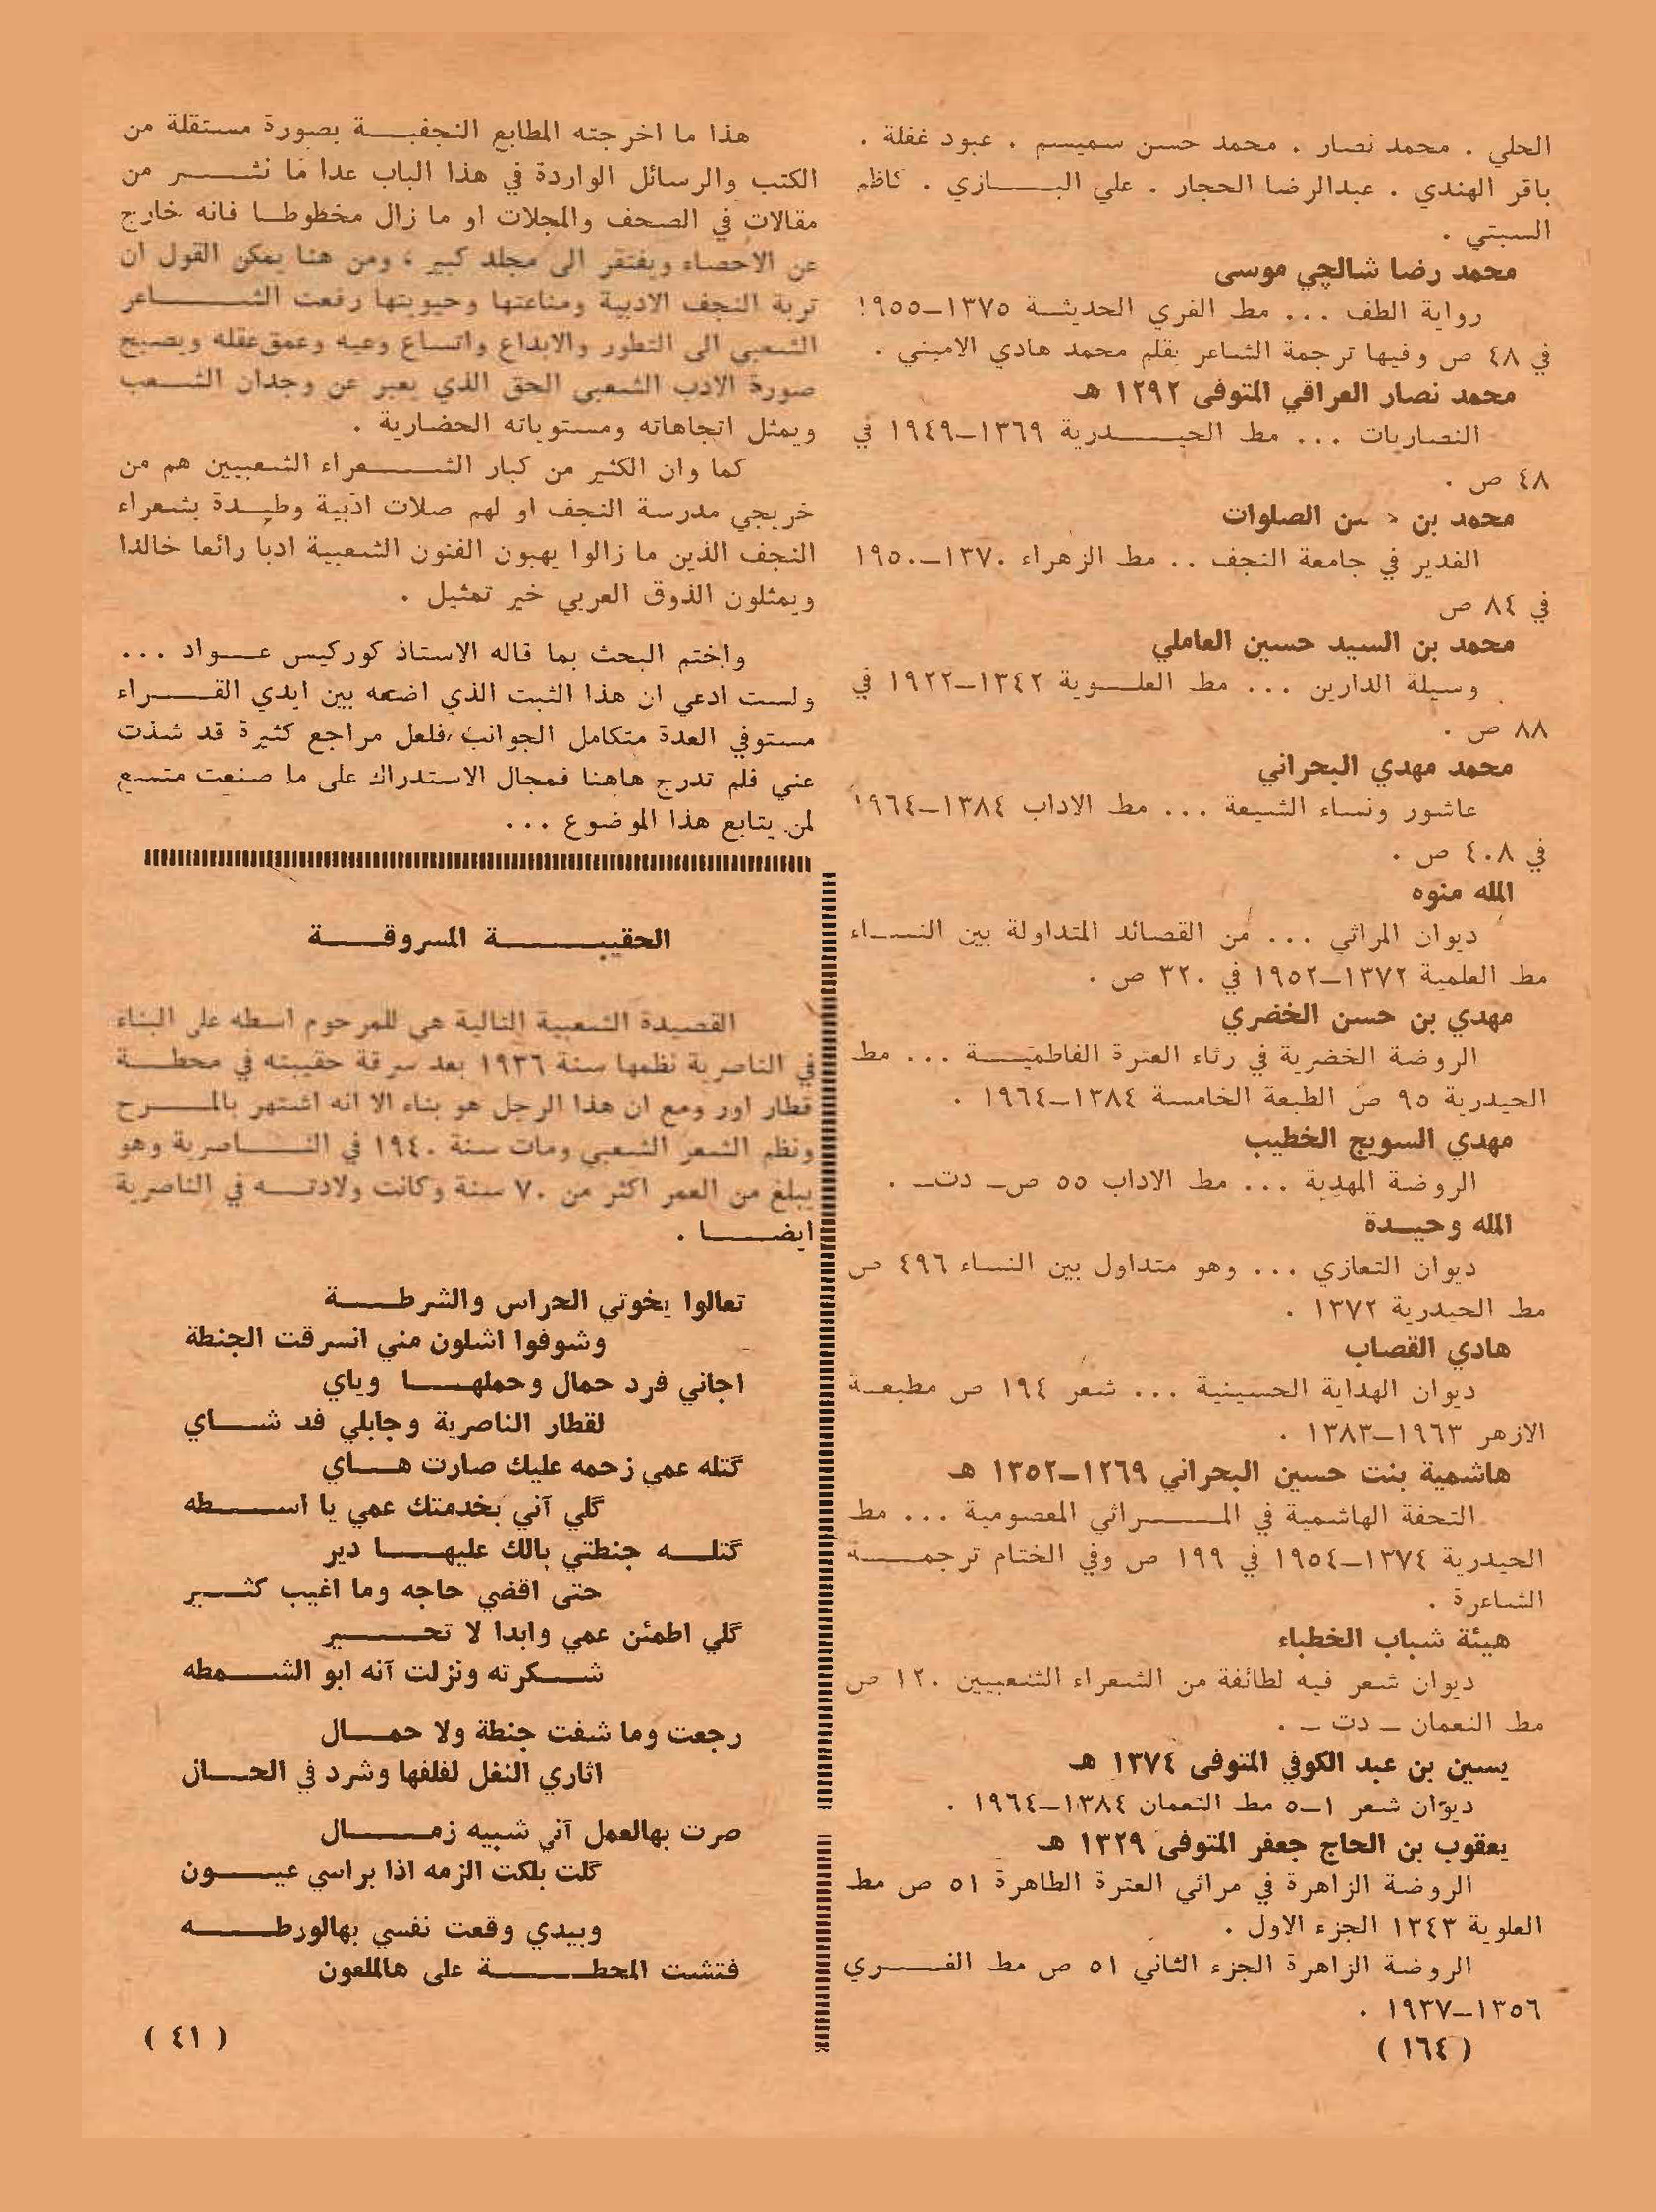 الحلي . محمد نصار . محمد حسن سميسم . عبود غفلة .
باقر الهندي . عبدالرضا الحجار . علي البازي . كاظم
السبتي .
محمد رضا شالچي موسى
رواية الطف ... مط الغري الحديثة ١٣٧٥–١٩٥٥
في ٤٨ ص وفيها ترجمة الشاعر بقلم محمد هادي الاميني .
محمد نصار العراقي المتوفى ١٢٩٢ هـ
النصاريات ... مط الحيدرية ١٣٦٩–١٩٤٩ في
٤٨ ص .
محمد بن حسن الصلوات
الغدير في جامعة النجف .. مط الزهراء ١٣٧٠–١٩٥٠
في ٨٤ ص
محمد بن السيد حسين العاملي
وسيلة الدارين ... مط العلوية ١٣٤٢–١٩٢٢ في
٨٨ ص .
محمد مهدي البحراني
عاشور ونساء الشيعة ... مط الاداب ١٣٨٤–١٩٦٤
في ٤٠٨ ص .
المله منوه
ديوان المراثي ... من القصائد المتداولة بين النساء
مط العلمية ١٣٧٢–١٩٥٢ في ٣٢٠ ص .
مهدي بن حسن الخضري
الروضة الخضرية في رثاء العترة الفاطمية ... مط
الحيدرية ٩٥ ص الطبعة الخامسة ١٣٨٤–١٩٦٤ .
مهدي السويج الخطيب
الروضة المهدية ... مط الاداب ٥٥ ص– دت– .
المله وحيدة
ديوان التعازي ... وهو متداول بين النساء ٤٩٦ ص
مط الحيدرية ١٣٧٢ .
هادي القصاب
ديوان الهداية الحسينية ... شعر ١٩٤ ص مطبعة
الازهر ١٩٦٣–١٣٨٣ .
هاشمية بنت حسين البحراني ١٢٦٩–١٣٥٢ هـ
التحفة الهاشمية في المراثي المعصومية ... مط
الحيدرية ١٣٧٤–١٩٥٤ في ١٩٩ ص وفي الختام ترجمة
الشاعرة .
هيئة شباب الخطباء
ديوان شعر فيه لطائفة من الشعراء الشعبيين ١٢٠ ص
مط النعمان – دت – .
يسين بن عبد الكوفي المتوفى ١٣٧٤ هـ
ديوان شعر ١–٥ مط النعمان ١٣٨٤–١٩٦٤ .
يعقوب بن الحاج جعفر المتوفى ١٣٢٩ هـ
الروضة الزاهرة في مراثي العترة الطاهرة ٥١ ص مط
العلوية ١٣٤٣ الجزء الاول .
الروضة الزاهرة الجزء الثاني ٥١ ص مط الغري
١٣٥٦–١٩٣٧ .
( ١٦٤ )
هذا ما اخرجته المطابع النجفية بصورة مستقلة من
الكتب والرسائل الواردة في هذا الباب عدا ما نشر من
مقالات في الصحف والمجلات او ما زال مخطوطا فانه خارج
عن الاحصاء ويفتقر الى مجلد كبير ، ومن هنا يمكن القول ان
تربة النجف الادبية ومناعتها وحيويتها رفعت الشاعر
الشعبي الى التطور والابداع واتساع وعيه وعمق عقله ويصبح
صورة الادب الشعبي الحق الذي يعبر عن وجدان الشعب
ويمثل اتجاهاته ومستوياته الحضارية .
كما وان الكثير من كبار الشعراء الشعبيين هم من
خريجي مدرسة النجف او لهم صلات ادبية وطيدة بشعراء
النجف الذين ما زالوا يهبون الفنون الشعبية ادبا رائعا خالدا
ويمثلون الذوق العربي خير تمثيل .
واختم البحث بما قاله الاستاذ كوركيس عواد ...
ولست ادعي ان هذا الثبت الذي اضعه بين ايدي القراء
مستوفي العدة متكامل الجوانب ، فلعل مراجع كثيرة قد شذت
عني فلم تدرج هاهنا فمجال الاستدراك على ما صنعت متسع
لمن يتابع هذا الموضوع ...
الحقيبة المسروقة
القصيدة الشعبية التالية هي للمرحوم اسطه علي البناء
في الناصرية نظمها سنة ١٩٣٦ بعد سرقة حقيبته في محطة
قطار اور ومع ان هذا الرجل هو بناء الا انه اشتهر بالمرح
ونظم الشعر الشعبي ومات سنة ١٩٤٠ في الناصرية وهو
يبلغ من العمر اكثر من ٧٠ سنة وكانت ولادته في الناصرية
ايضا .
تعالوا يخوتي الحراس والشرطة
وشوفوا اشلون مني انسرقت الجنطة
اجاني فرد حمال وحملها وياي
لقطار الناصرية وجابلي فد شاي
گتله عمي زحمه عليك صارت هاي
گلي آني بخدمتك عمي يا اسطه
گتله جنطتي بالك عليها دير
حتى اقضي حاجه وما اغيب كثير
گلي اطمئن عمي وابدا لا تحير
شكرته ونزلت آنه ابو الشمطه
رجعت وما شفت جنطة ولا حمال
اثاري النغل لفلفها وشرد في الحال
صرت بهالعمل آني شبيه زمال
گلت بلكت الزمه اذا براسي عيون
وبيدي وقعت نفسي بهالورطه
فتشت المحطة على هالملعون
( ٤١ )